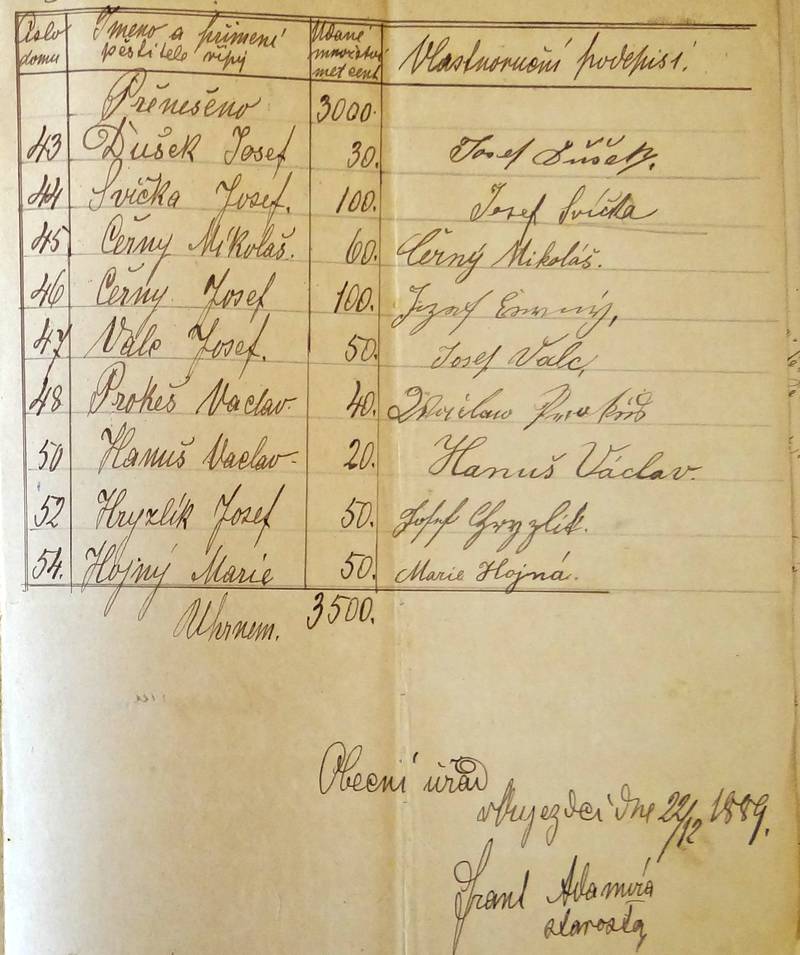 Číslo domu Jmeno a přímení pěstitele řípy Udané množství met cent. Vlastnoruční podepisí.
Přenešeno 3000.
43 Dušek Josef 30. Josef Dušek.
44 Svička Josef. 100. Josef Svička
45 Černy Mikolaš. 60. Černý Mikoláš.
46 Černy Josef 100. Jozef
47 Valc Josef. 50. Josef Valc.
48 Prokeš Vaclav. 40.
50 Hanuš Vaclav 20. Hanuš Václav.
52 Hryzlík Josef 50. Josef Chryzlik.
54. Hojný Marie 50. Marie Hojná.
Uhrnem. 3500.
Obecní úřad
dne 22/12 1889.
Frant Adamíra
starosta